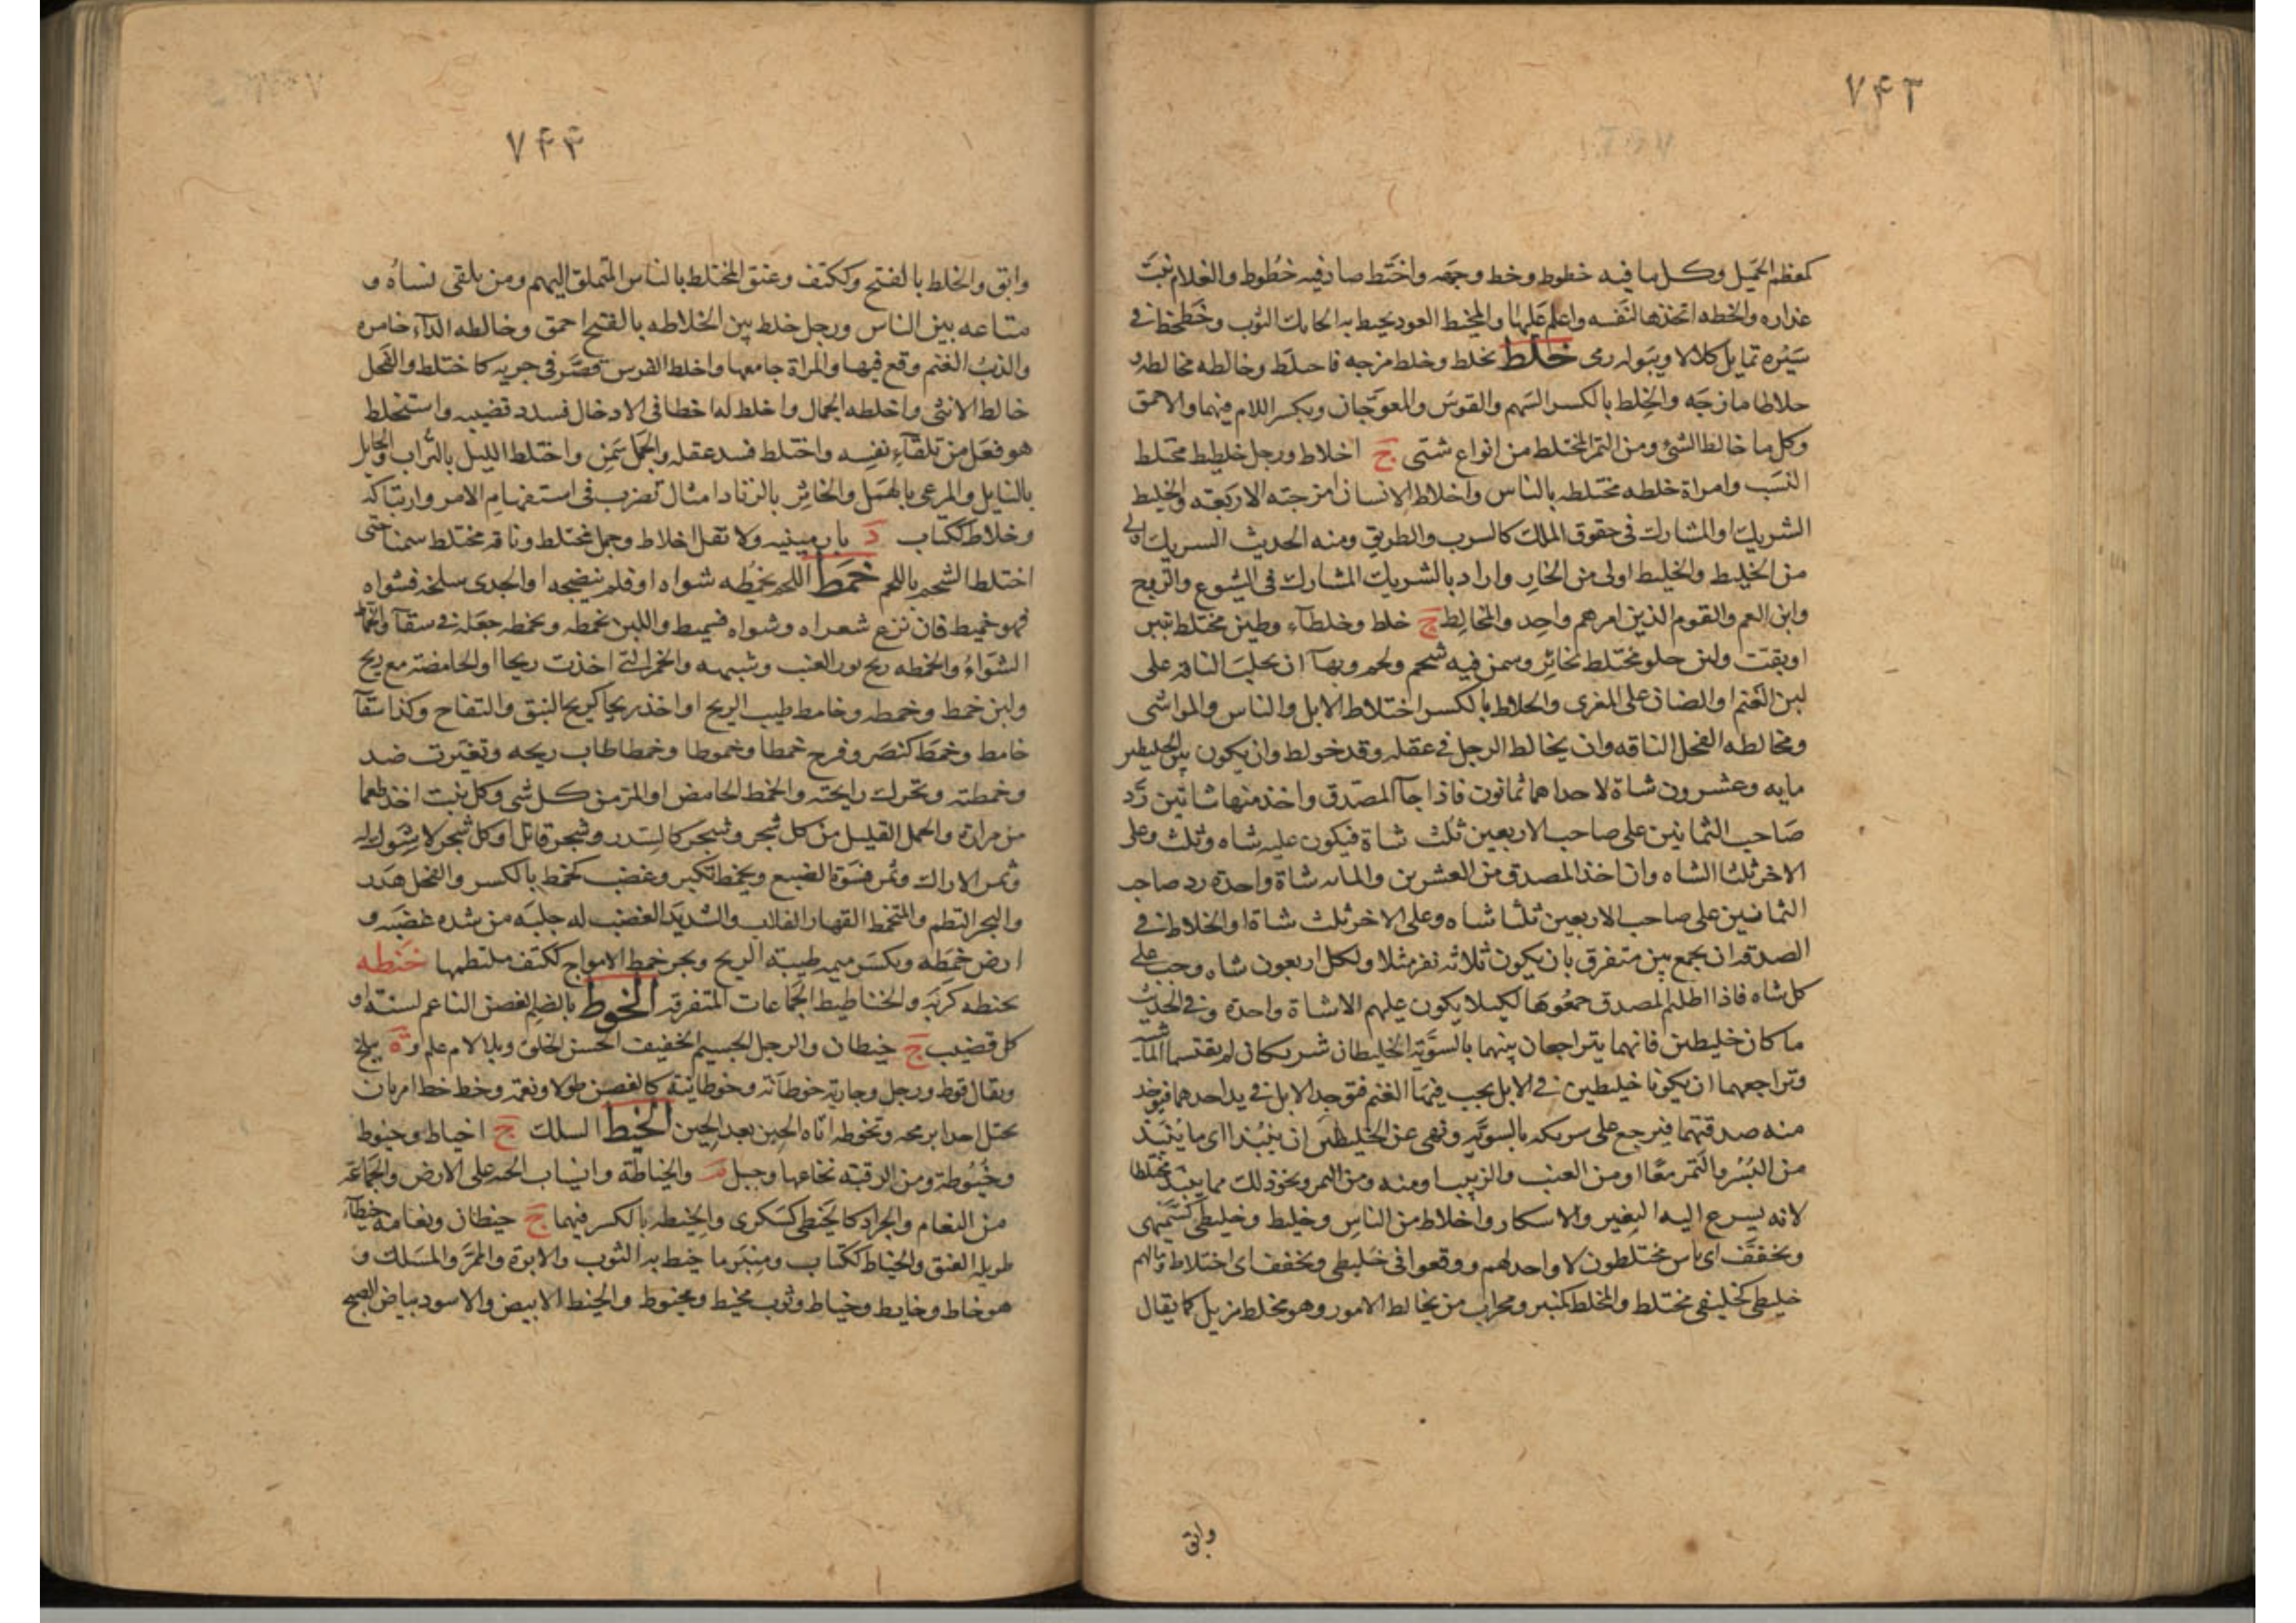 ٧۴٣
كمعظم الجميل وكل ما فيه خطوط وخط وجهه واختط صار فيه خطوط والغلام نبت
عذاره والخطه اتخذها لنفسه واعلم عليها والمخيط العود يخيط به الحايك الثوب وخطخط في
سيره تمايل كلالا وببوله رمى خلط يخلط وخلط مزجه فاختلط وخالطه مخالطه و
خلاطا مازجه والخلط بالكسر السهم والقوس والمعوجان وبكسر اللام فيهما والاحمق
وكل ما خالط الشئ ومن التمر المختلط من انواع شتى ج اخلاط ورجل خليط مختلط
النسب وامراة خلطه مختلطه بالناس واخلاط الانسان امزجته الاربعه والخليط
الشريك والمشارك في حقوق الملك كالشرب والطريق ومنه الحديث الشريك اولى
من الخليط والخليط اولى من الجار واراد بالشريك المشارك في الشيوع والزوج
وابن العم والقوم الذين امرهم واحد والمخالط ج خلط وخلطآء وطين مختلط بتبن
اوبقت ولبن حلو مختلط بخاثر وسمن فيه شحم ولحم وبهآ ان يحلب الناقه على
لبن الغنم او الضان على المغرى والخلاط بالكسر اختلاط الابل والناس والمواشى
ومخالطه الفحل الناقه وان يخالط الرجل في عقله وقد خولط وان يكون بين الخليطين
مايه وعشرون شاة لاحداهما ثمانون فاذا جآ المصدق واخذ منها شاتين رد
صاحب الثمانين على صاحب الاربعين ثلث شاة فيكون عليه شاه وثلث وعلى
الاخر ثلثا الشاه وان اخذ المصدق من العشرين والمايه شاة واحدة رد صاحب
الثمانين على صاحب الاربعين ثلثا شاه وعلى الاخر ثلث شاة او الخلاط في
الصدقه ان يجمع بين متفرق بان يكون ثلاثه نفر مثلا ولكل اربعون شاه وجب على
كل شاه فاذا اظلهم المصدق جمعوها لكيلا يكون عليهم الا شاة واحدة وفي الحديث
ما كان خليطين فانهما يتراجعان بينهما بالسوية الخليطان شريكان لم يقتسما المآشية
وتراجعهما ان يكونا خليطين في الابل يجب فيها الغنم فتوجد الابل في يد احدهما فيوخذ
منه صدقتهما فيرجع على شريكه بالسويه ونهى عن الخليطين ان ينبذا اى ما ينبذ
من البسر والتمر معا او من العنب والزبيب او منه ومن التمر ونحو ذلك مما ينبذ مختلطا
لانه يسرع اليه التغير والاسكار واخلاط من الناس وخليط وخليطى كسميهى
ويخفف اى ناس مختلطون لا واحد لهم ووقعوا في خليطى ويخفف اى اختلاط ومالهم
خليطى كخليفى مختلط والمخلط كمنبر ومحراب من يخالط الامور وهو مخلط مزيل كما يقال
واتق
٧۴۴
واتق والخلط بالفتح وككتف وعنق المختلط بالناس المتملق اليهم ومن يلقى نساه و
متاعه بين الناس ورجل خلط بين الخلاطه بالفتح احمق وخالطه الدآء خامره
والذئب الغنم وقع فيها والمراة جامعها واخلط الفرس قصر في جريه كاختلط والفحل
خالط الانثى واخلطه الجمال واخلط له اخطا في الادخال فسدد قضيبه واستخلط
هو فعل من تلقآء نفسه واختلط فسد عقله والجمل سمن واختلط الليل بالتراب والحابل
بالنابل والمرعى بالهمل والخاثر بالزباد امثال تضرب في استبهام الامر وارتباكه
وخلاط ككتاب د بارمينيه ولا تقل اخلاط وجمل مختلط وناقه مختلط سمنا حتى
اختلط الشحم باللحم خمط اللحم يخمطه شواه او فلم ينضجه او الجدى سلخه فشواه
فهو خميط فان نزع شعراه وشواه فسميط واللبن يخمطه ويخمطه جعله في سقآ والخماط
الشوآء والخمطه ريح نور العنب وشبهه والخمر التي اخذت ريحا او الحامضة مع ريح
ولبن خمط وخمطه وخامط طيب الريح او اخذ ريحا كريح النبق والتفاح وكذا سقآ
خامط وخمط كنصر وفرح خمطا وخموطا وخمطا طاب ريحه وتغيرت ضد
وخمطته وتحرك رايحته والخمط الحامض او المر من كل شى وكل نبت اخذ طعما
من مرارة والحمل القليل من كل شجر وشجر كالسدر وشجر قاتل او كل شجر لا شوك له
وثمر الاراك وثمر فسوة الضبع وتخمط تكبر وغضب كخمط بالكسر والفحل هدر
والبحر التطم والمتخمط القهار الغالب والشديد الغضب له جلبه من شده غضبه و
ارض خمطه وبكسر ميمه طيبة الريح وبحر خمط الامواج ككتف ملتطمها خنطه
يخنطه كربه والخناطيط الجماعات المتفرقه الخوط بالضم الغصن الناعم لسنته او
كل قضيب ج خيطان والرجل الجسيم الخفيف الحسن الخلق وبلا لام علم وة ببلخ
ويقال قوط ورجل وجارية خوطانه وخوطانية كالغصن طولا ونعمة وخط خط امر بان
يختل احدا برمحه وتخوطه اتاه الحين بعد الحين الخيط السلك ج اخياط وخيوط
وخيوطة ومن الرقبة نخاعها وجبل م والخياطة وانسياب الحيه على الارض والجماعة
من النعام والجراد كالخيطى كسكرى والخيطه بالكسر فيهما ج خيطان ونعامه خيطآء
طويله العنق والخياط ككتاب ومنبر ما خيط به الثوب والابرة والممر والمسلك و
هو خاط وخايط وخياط وثوب مخيط ومخيوط والخيط الابيض والاسود بياض الصبح